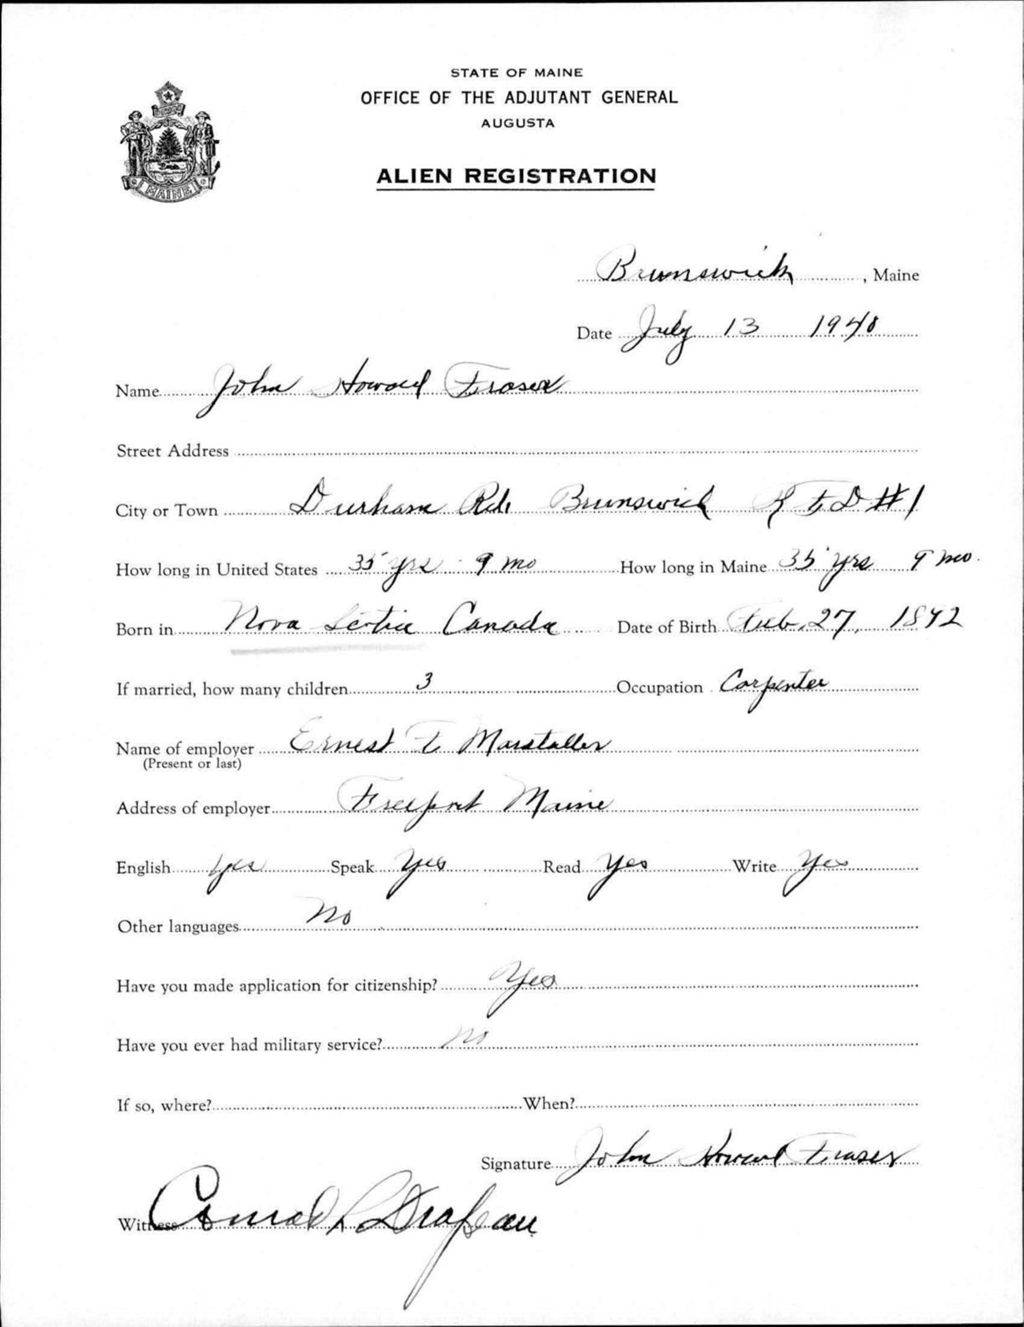 STATE OF MAINE
OFFICE OF THE ADJUTANT GENERAL
AUGUSTA
ALIEN REGISTRATION
MAINE
Brunswick, Maine
Date July 13 1940
Name John Howard Fraser
Street Address
City or Town Durham Rd. Brunswick R F D #1
How long in United States 35 yrs 9 mo How long in Maine 35 yrs 9 mo.
Born in Nova Scotia Canada Date of Birth Feb. 27, 1892
If married, how many children 3 Occupation Carpenter
Name of employer Ernest F Marstaller
(Present or last)
Address of employer Freeport Maine
English yes Speak Yes Read Yes Write Yes
Other languages No
Have you made application for citizenship? Yes
Have you ever had military service? No
If so, where? When?
Signature John Howard Fraser
Witness Conrad L Drapeau